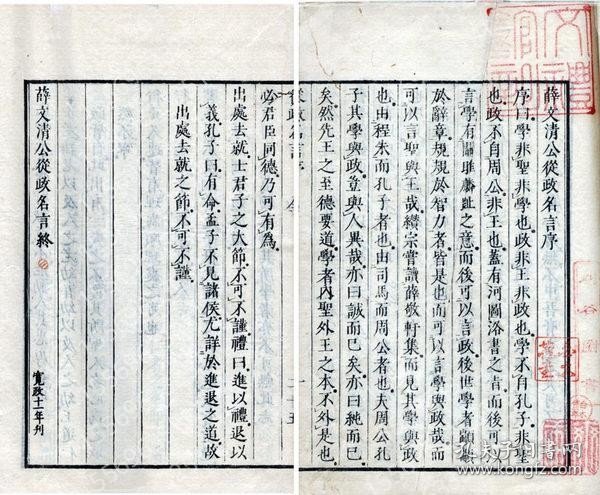 薛文清公從政名言序
序曰學非聖非學也政非王非政也學不自孔子非聖
也政不自周公非王也蓋有河圖洛書之旨而後可
言學有關雎麟趾之意而後可以言政後世學者顓顓
於辭章規規於智力者皆是也而可以言學與政哉而
可以言聖與王哉纘宗嘗讀薛敬軒集而見其學與政
也由程朱而孔子者也由司馬而周公者也夫周公孔
子其學與政豈與人異哉亦曰誠而已矣亦曰純而已
矣然先王之至德要道學者內聖外王之本不外是也
從政名言序
必君臣同德乃可有為
出處去就士君子之大節不可不謹禮曰進以禮退以
義孔子曰有命孟子不見諸侯尤詳於進退之道故
出處去就之節不可不謹
薛文清公從政名言終
寬政十一年刊
孔夫子旧书网
www.kongfz.com